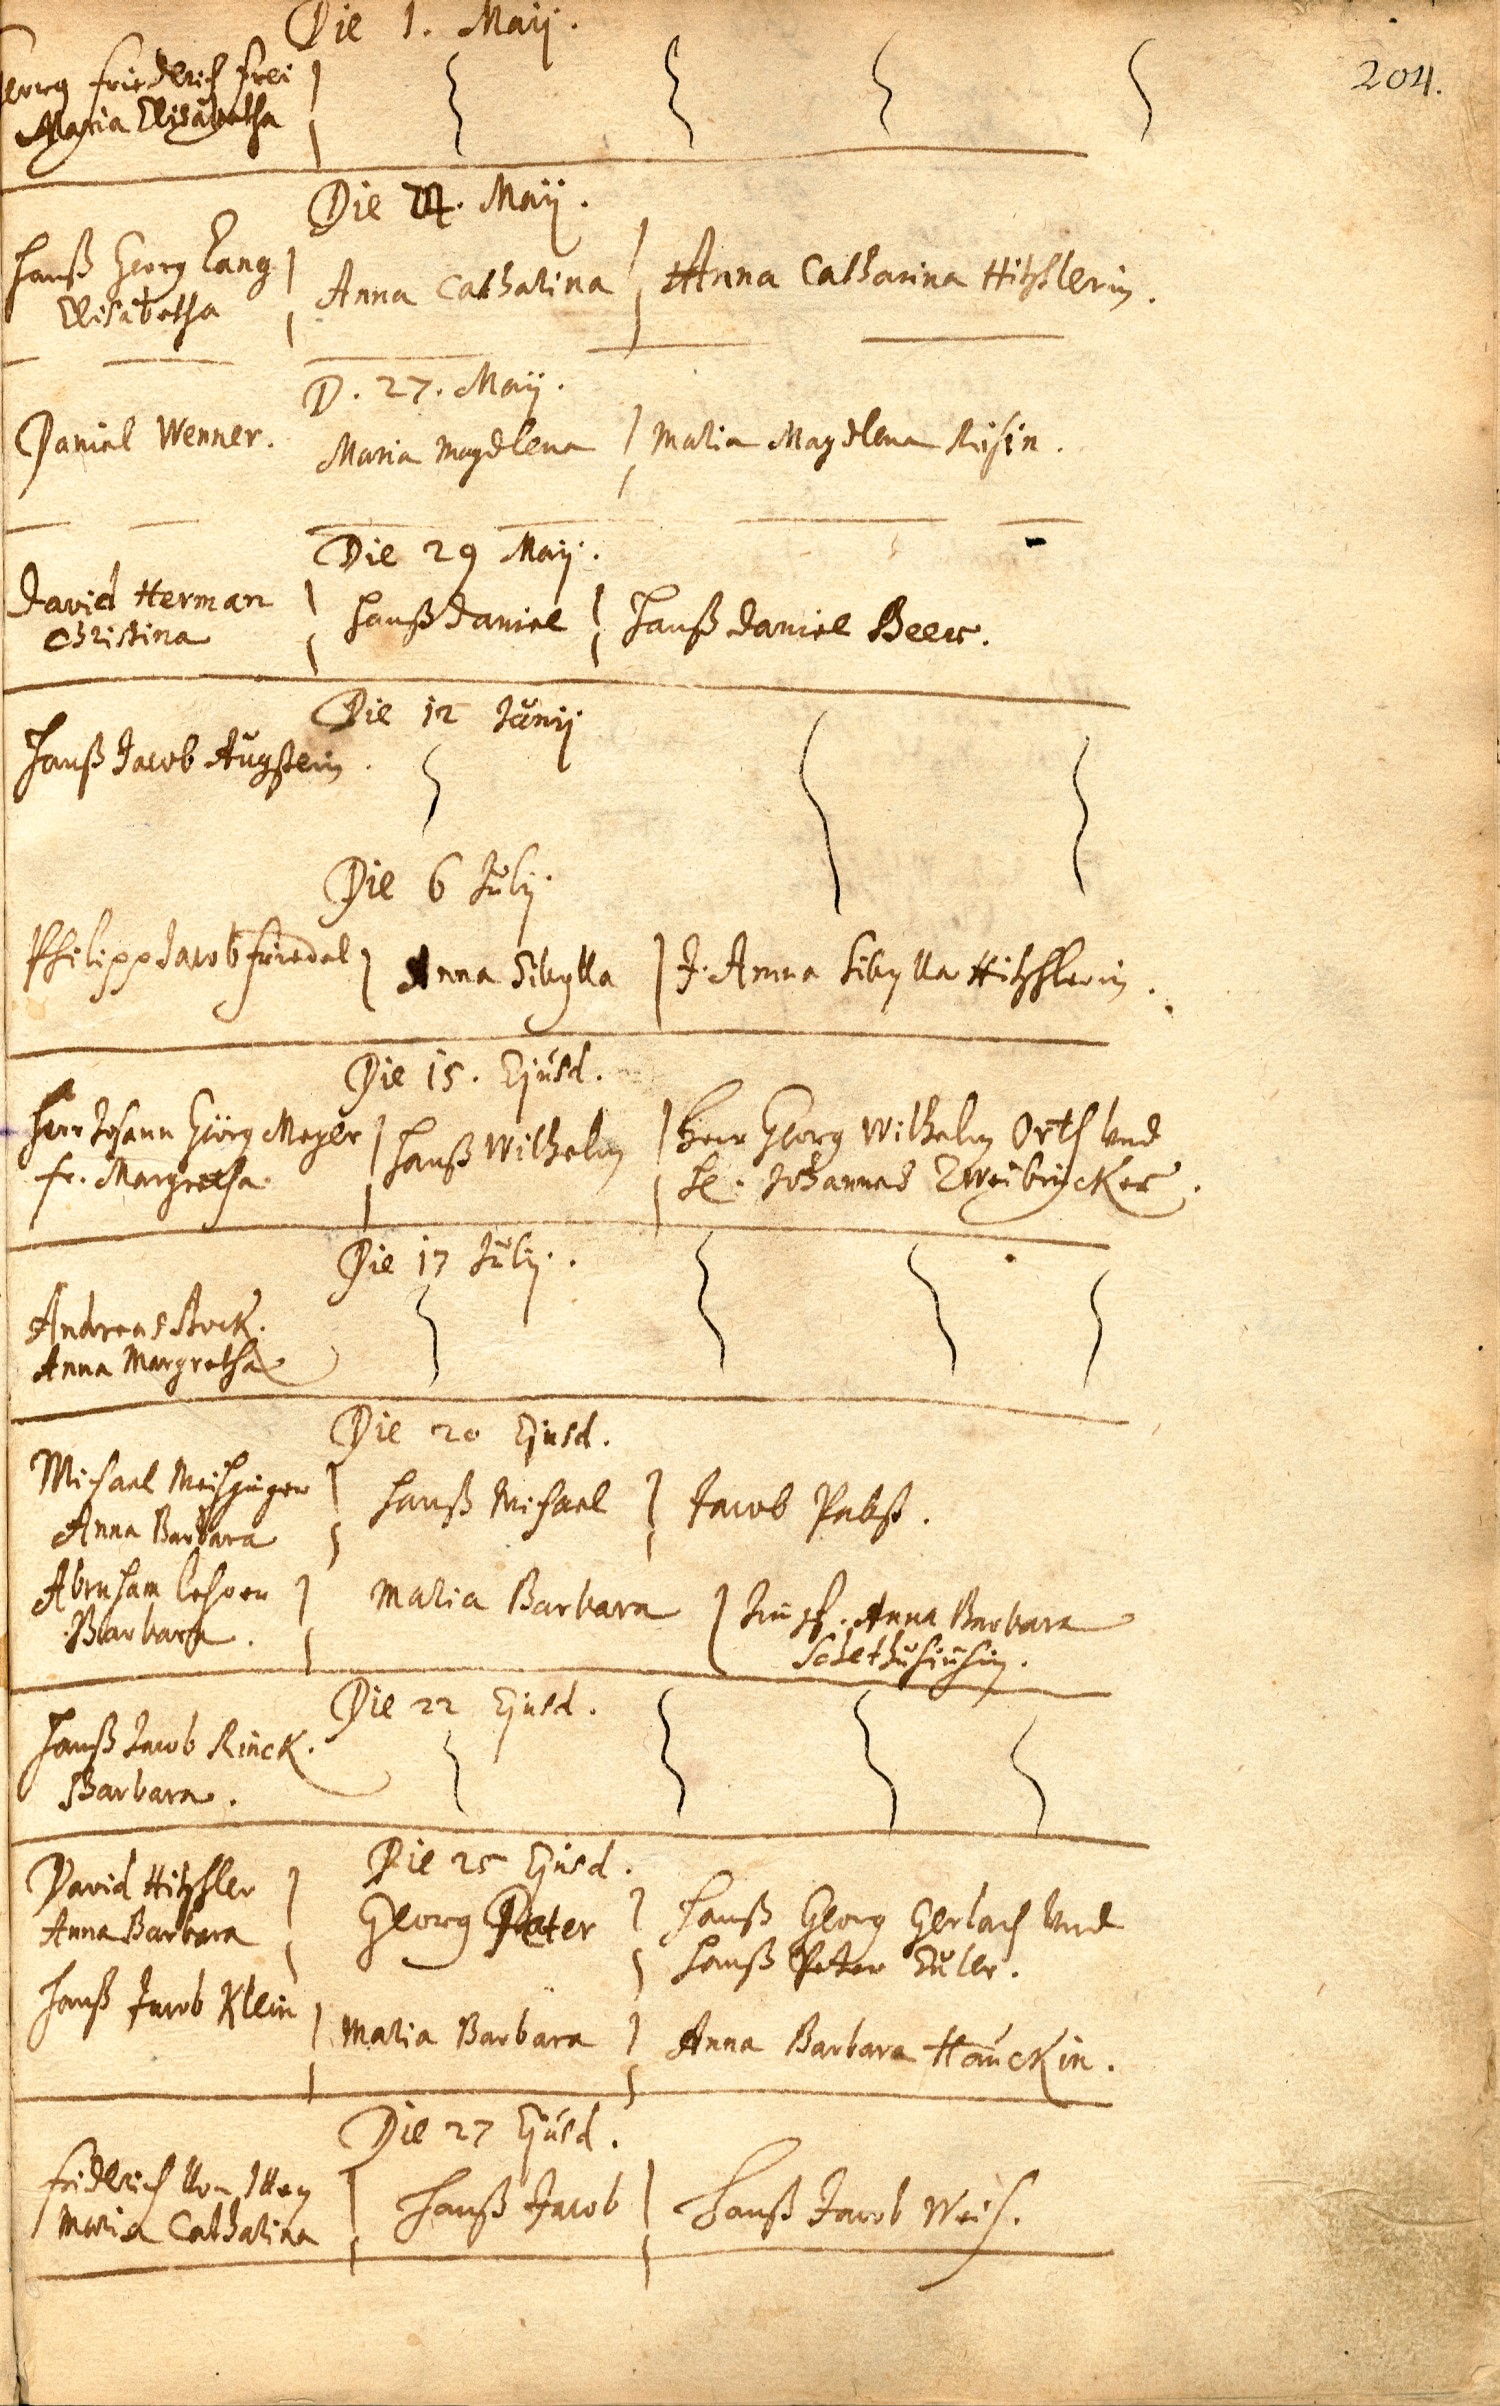 204.
Die 1. Maij.
Georg Friedrich Frei
Maria Elisabetha
Die 24. Maij.
Hanß Georg Lang
Elisabetha
Anna Catharina
Anna Catharina Hitzhlerin.
D. 27. Maij.
Daniel Wenner.
Maria Magdlena
Maria Magdlena
Die 29 Maij.
David Herman
Christina
Hanß Daniel
Hanß Daniel Beer.
Die 12 Junij
Hanß Jacob Augstein.
Die 6 Julij
Philipp Jacob Friedel
Anna Sibylla
J. Anna Sibylla Hitzhlerin.
Die 15. Ejusd.
Herr Johann Görg Meyer
fr. Margretha
Hanß Wilhelm
Herr Georg Wilhelm Orth Und
H. Johannes Zweibrycker.
Die 17 Julij.
Andreas Stock.
Anna Margretha
Die 20 Ejusd.
Michael
Anna Barbara
Hanß Michael
Jacob Pabst.
Abraham
Barbara.
Maria Barbara
Jungf. Anna Barbara
Die 22 Ejusd.
Hanß Jacob Rinck.
Barbara.
Die 25 Ejusd.
David Hitzhler
Anna Barbara
Georg Peter
Hanß Georg Gerlach Und
Hanß Peter Euler.
Hanß Jacob Klein
Maria Barbara
Anna Barbara Hauckin.
Die 27 Ejusd.
Fridrich Von
Maria Catharina
Hanß Jacob
Hanß Jacob Weis.